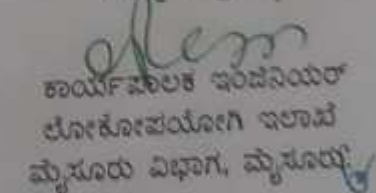 ಕಾರ್ಯಪಾಲಕ ಇಂಜಿನಿಯರ್
ಲೋಕೋಪಯೋಗಿ ಇಲಾಖೆ
ಮೈಸೂರು ವಿಭಾಗ, ಮೈಸೂರು.